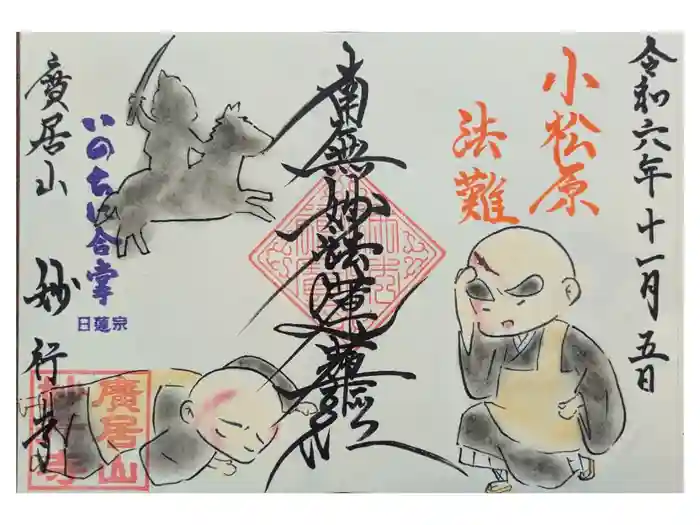 令和六年十一月五日
小松原
法難
南無妙法蓮華経
いのちに合掌
日蓮宗
廣居山
妙行寺
廣居山
妙行寺